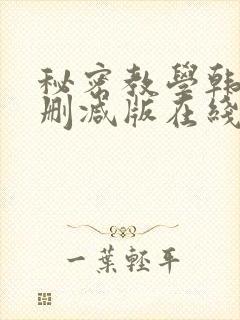 秘密教學韩
删减版在綫
一葉輕平